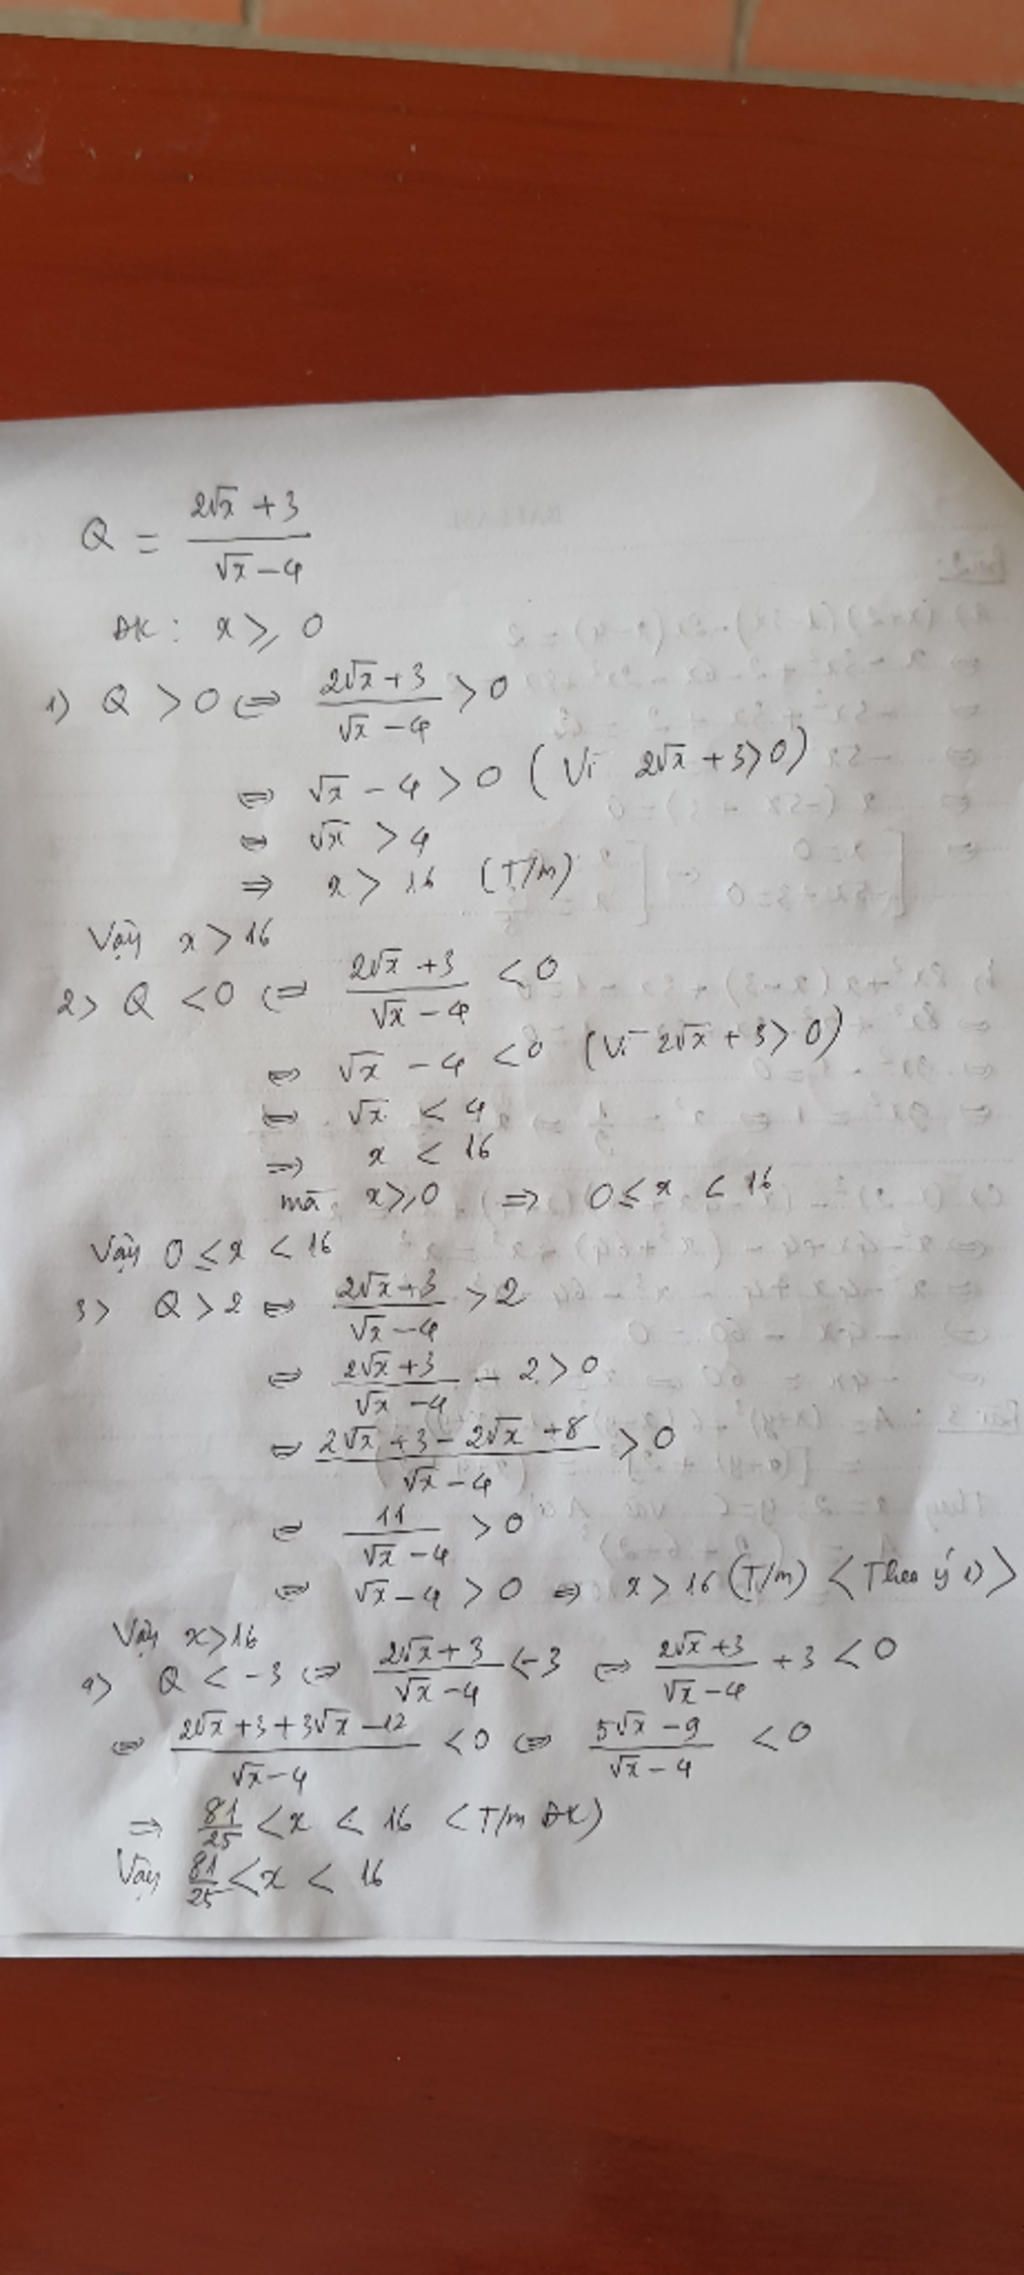 Q = \frac{2\sqrt{x}+3}{\sqrt{x}-4}
ĐK: x ⩾ 0
1) Q > 0 ⇔ \frac{2\sqrt{x}+3}{\sqrt{x}-4} > 0
⇔ \sqrt{x} - 4 > 0 (Vì 2\sqrt{x} + 3 > 0)
⇔ \sqrt{x} > 4
⇒ x > 16 (T/m)
Vậy x > 16
2> Q < 0 ⇔ \frac{2\sqrt{x}+3}{\sqrt{x}-4} < 0
⇔ \sqrt{x} - 4 < 0 (Vì 2\sqrt{x} + 3 > 0)
⇔ \sqrt{x} < 4
⇒ x < 16
mà x ⩾ 0 ⇒ 0 ≤ x < 16
Vậy 0 ≤ x < 16
3> Q > 2 ⇔ \frac{2\sqrt{x}+3}{\sqrt{x}-4} > 2
⇔ \frac{2\sqrt{x}+3}{\sqrt{x}-4} - 2 > 0
⇔ \frac{2\sqrt{x}+3-2\sqrt{x}+8}{\sqrt{x}-4} > 0
⇔ \frac{11}{\sqrt{x}-4} > 0
⇔ \sqrt{x} - 4 > 0 ⇔ x > 16 (T/m) <Theo ý 1)>
Vậy x > 16
4> Q < -3 ⇔ \frac{2\sqrt{x}+3}{\sqrt{x}-4} < -3 ⇔ \frac{2\sqrt{x}+3}{\sqrt{x}-4} + 3 < 0
⇔ \frac{2\sqrt{x}+3+3\sqrt{x}-12}{\sqrt{x}-4} < 0 ⇔ \frac{5\sqrt{x}-9}{\sqrt{x}-4} < 0
⇒ \frac{81}{25} < x < 16 <T/m ĐK)
Vậy \frac{81}{25} < x < 16